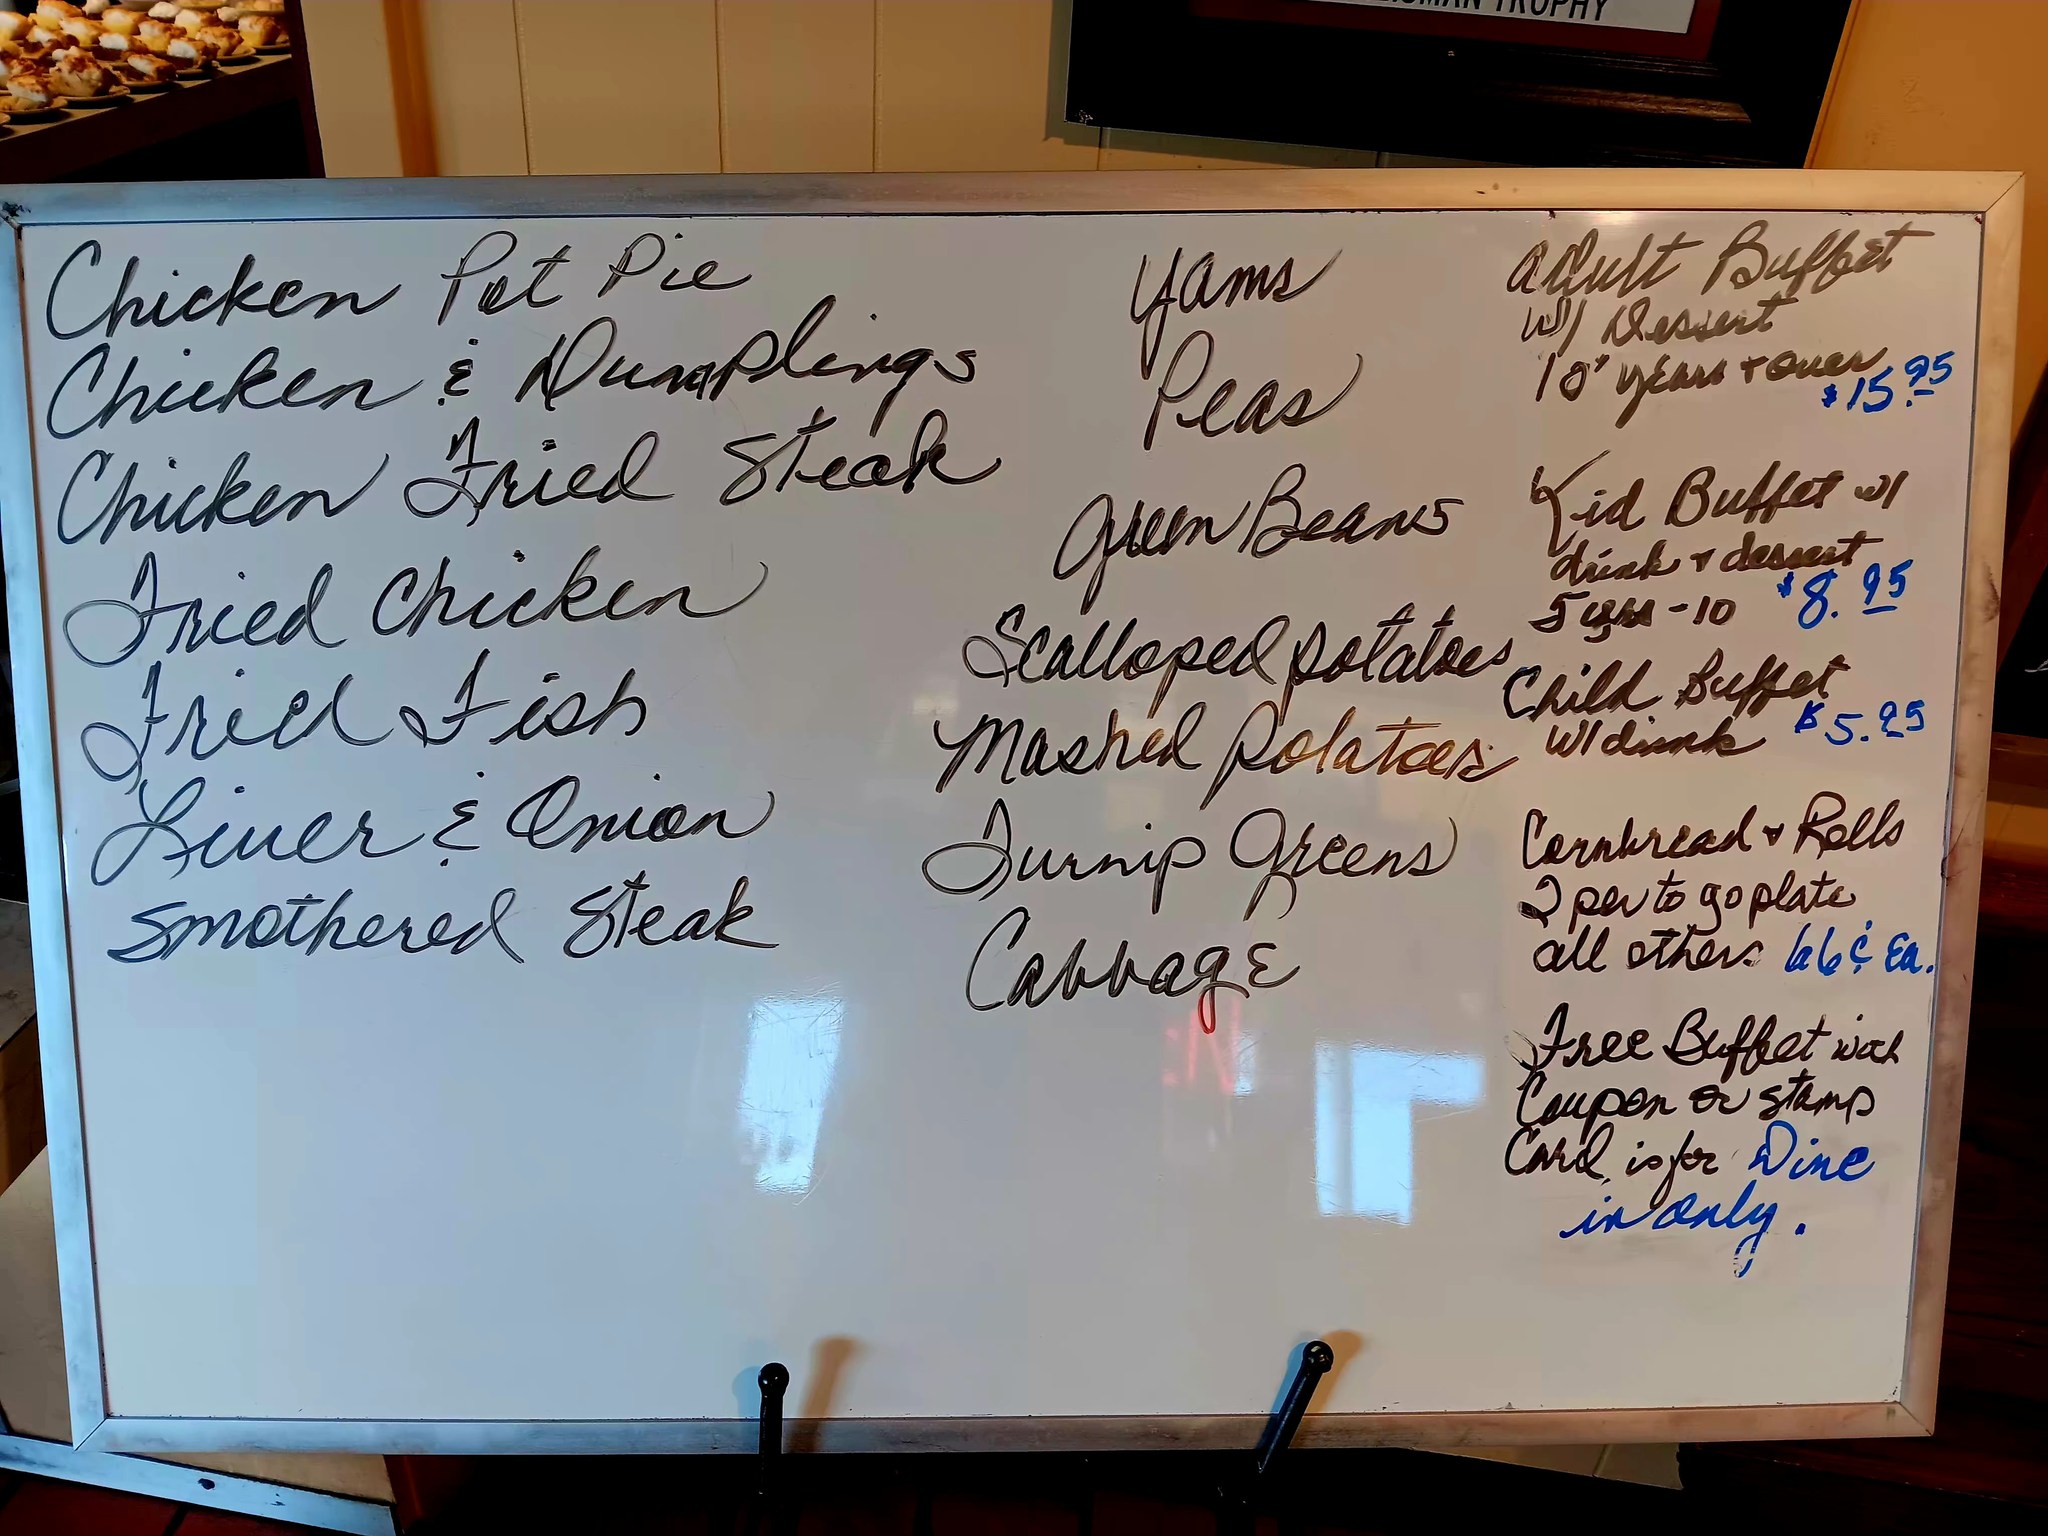 TROPHY
Chicken Pot Pie
Chicken & Dumplings
Chicken Fried Steak
Fried Chicken
Fried Fish
Liver & Onion
Smothered Steak
Yams
Peas
Green Beans
Scalloped potatoes
Mashed potatoes
Turnip Greens
Cabbage
Adult Buffet
W/ Dessert
years + over
$15.95
Kid Buffet w/
drink + dessert
5 yrs - 10 $8.95
Child Buffet
W/ drink $5.95
Cornbread + Rolls
2 per to go plate
all others 66¢ Ea.
Free Buffet with
Coupon or stamp
Card is for Dine
in only.